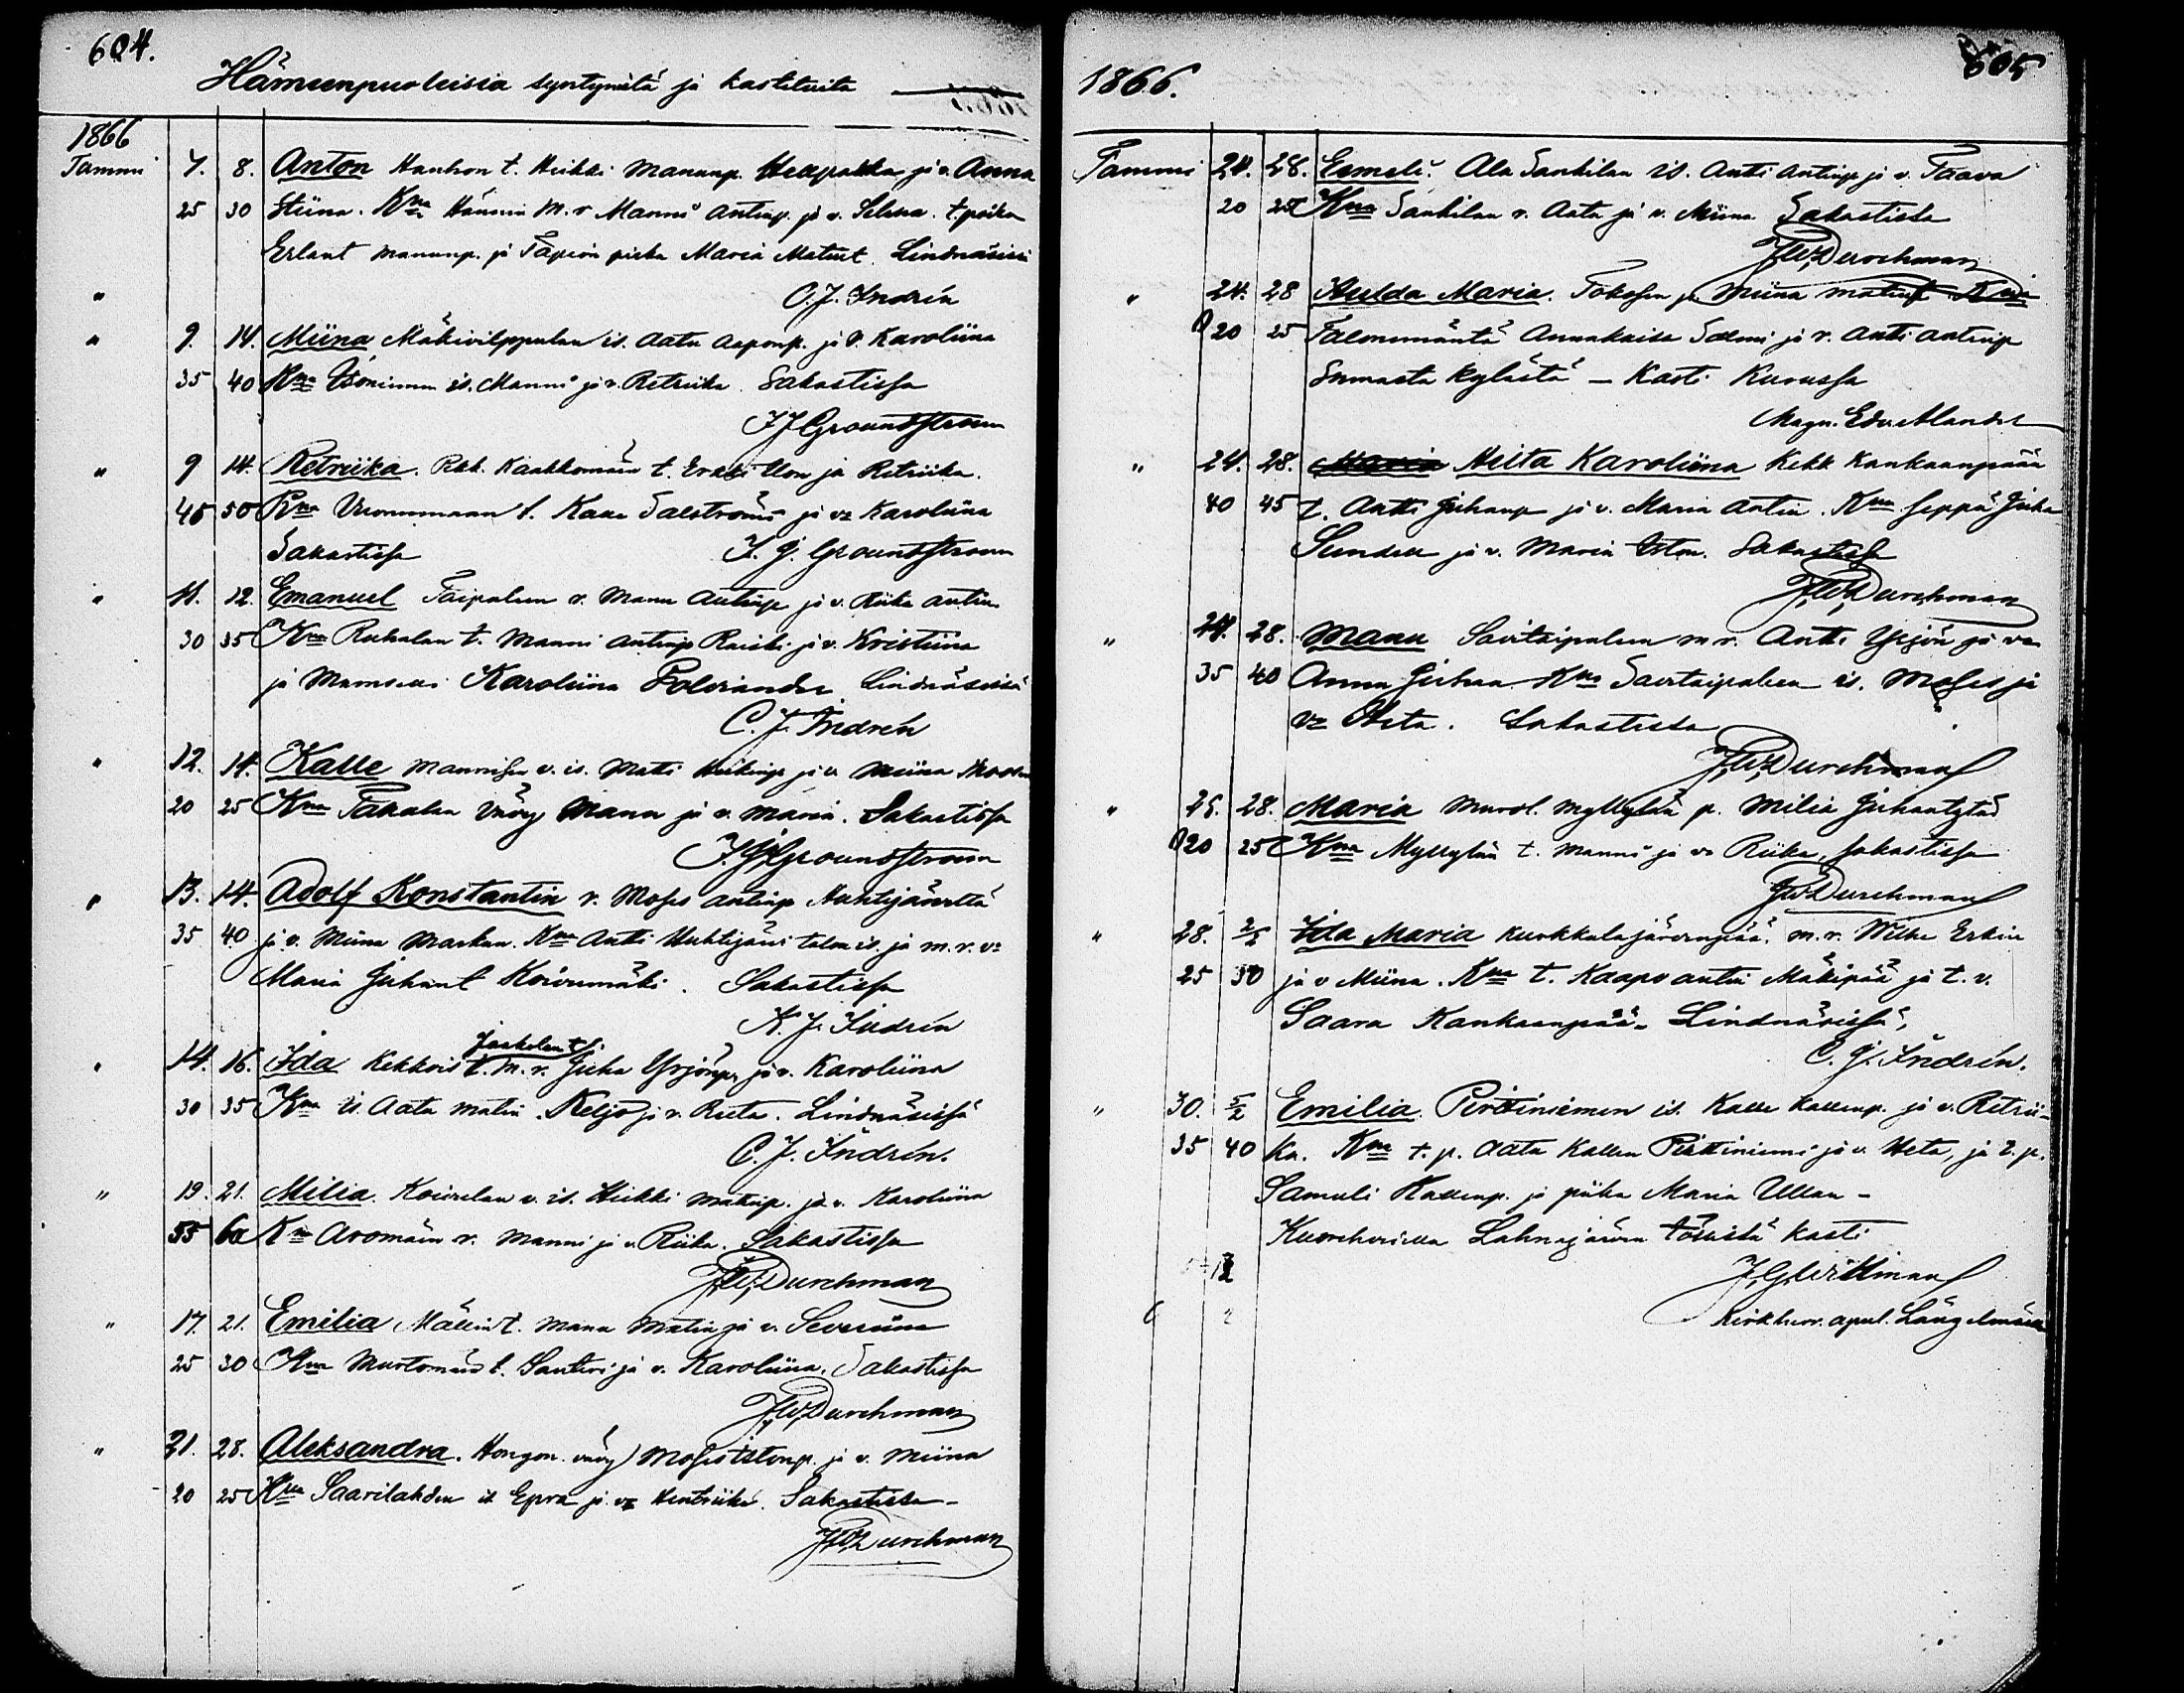 604.
Hämeenpuoleisia syntyneitä ja kastetuita
1866
Tammi 7. 8. Anton Hanhon t. Heikki Manunp. Haapakka ja v. Anna
25 30 Stiina. Kma Hännin m.v. Manni Antinp. ja v. Selma. t.poika
Erlant Manunp. ja Tapion piika Maria Matint. Lindnäsissä
" C. J. Indrén
" 9. 14. Miina Mäkivilppulan is. Aatu Aaponp. ja v. Karoliina
35 40 Kma is. Manni ja v. Retriika. Sakastissa
J J Groundstroem
" 9 14. Retriika. Rkk. Kaakkomäen t. Erkki Elon ja Retriika.
45 50 Kma Vuorenmaan t. Kalle Salström ja vo Karoliina
Sakastissa J. J. Groundstroem
" 11. 12. Emanuel Taipaleen r. Manu Antinp ja v. Riika Antin.
30 35 Kma Ruhalan t. Manni Antinp Raiski ja v. Kristiina
ja Mamselli Karoliina Polviander Lindnäsissä
C. J. Indrén
" 12. 14. Kalle Mannisen v. is. Matti Heikinp ja v. Miina
20 25 Kma Takalan vävy Manu ja v. Maria. Sakastissa
J. J. Groundstroem
" 13. 14. Adolf Konstantin r. Moses Antinp Huhtijärveltä
35 40 ja v. Miina Markun. Kma Antti Huhtijärvi talon is. ja m.v. vo
Maria Juhant Koivumäki. Sakastissa
K. J. Indrén
Jaakolan t.
" 14. 16. Ida Kekkois t. m.v. Juha Yrjönp. ja v. Karoliina
30 35 Kma is. Aata Matin. Keljo ja v. Reeta. Lindnäsissä
C. J. Indrén.
" 19. 21. Milia. Koivulan v. is. Heikki Matinp. ja v. Karoliina
55 60 Kma Aromäen r. Manni ja v. Riika. Sakastissa
J W Durchman
" 17. 21. Emilia Mällin t. Manu Matinp ja v. Severiina
25 30 Kma Murtomäen t. Santeri ja v. Karoliina. Sakastissa
J W Durchman
" 21. 28. Aleksandra. Hongon vävy Moses Iston p. ja v. Miina
20 25 Kma Saarilahden is Epra ja vo Hentriika. Sakastissa
J W Durchman
605
1866.
Tammi 24. 28. Eemeli. Ala Sankilan is. Antti Antinp ja v. Taava
20 25 Kma Sankilan r. Aatu ja v. Miina Sakastissa
J W Durchman
" 24. 28 Hulda Maria. Tokosen p. Miina Matint Kma
20 25 Talonemäntä Annakaisa Salmi ja r. Antti Antinp
kylästä - Kasti Kurussa
Magn. Edv. Alander
" 24. 28. Maria Heita Karoliina Kekk Kankaanpään
40 45 t. Antti Juhanp ja v. Maria Antin. Kma seppä Juha
Sundell ja v. Maria Sakastissa
J W Durchman
" 24. 28. Manu Savitaipaleen m.v. Antti Yrjön ja vo
35 40 Anna Juhan Kma Savitaipaleen is. Moses ja
vo Heta. Sakastissa
J W Durchman
" 25. 28. Maria Murol. Myllylän p. Milia Juhantytär
20 25 Kma Myllylän t. Manni ja vo Riika, sakastissa
J W Durchman
" 28. 2/2 Ida Maria Kurkkulajärvenpää. m.v. Wille Erkin
25 30 ja v Miina. Kma t. Kaapo Antin Mäkipää ja t. v.
Saara Kankaanpää. Lindnäsissä,
C. J. Indrén.
" 30. 5/2 Emilia. Pirttiniemen is. Kalle Kallenp. ja v. Retrii-
35 40 ka. Kma t. p. Aatu Kallen Pirttiniemi ja v. Heta, ja t. p.
Samuli Kallenp. ja piika Maria Ullan -
Kuorehvesilla Lahnajärven töllistä kasti
J. G. Wittman
kirkkov. apul. Längelmäen